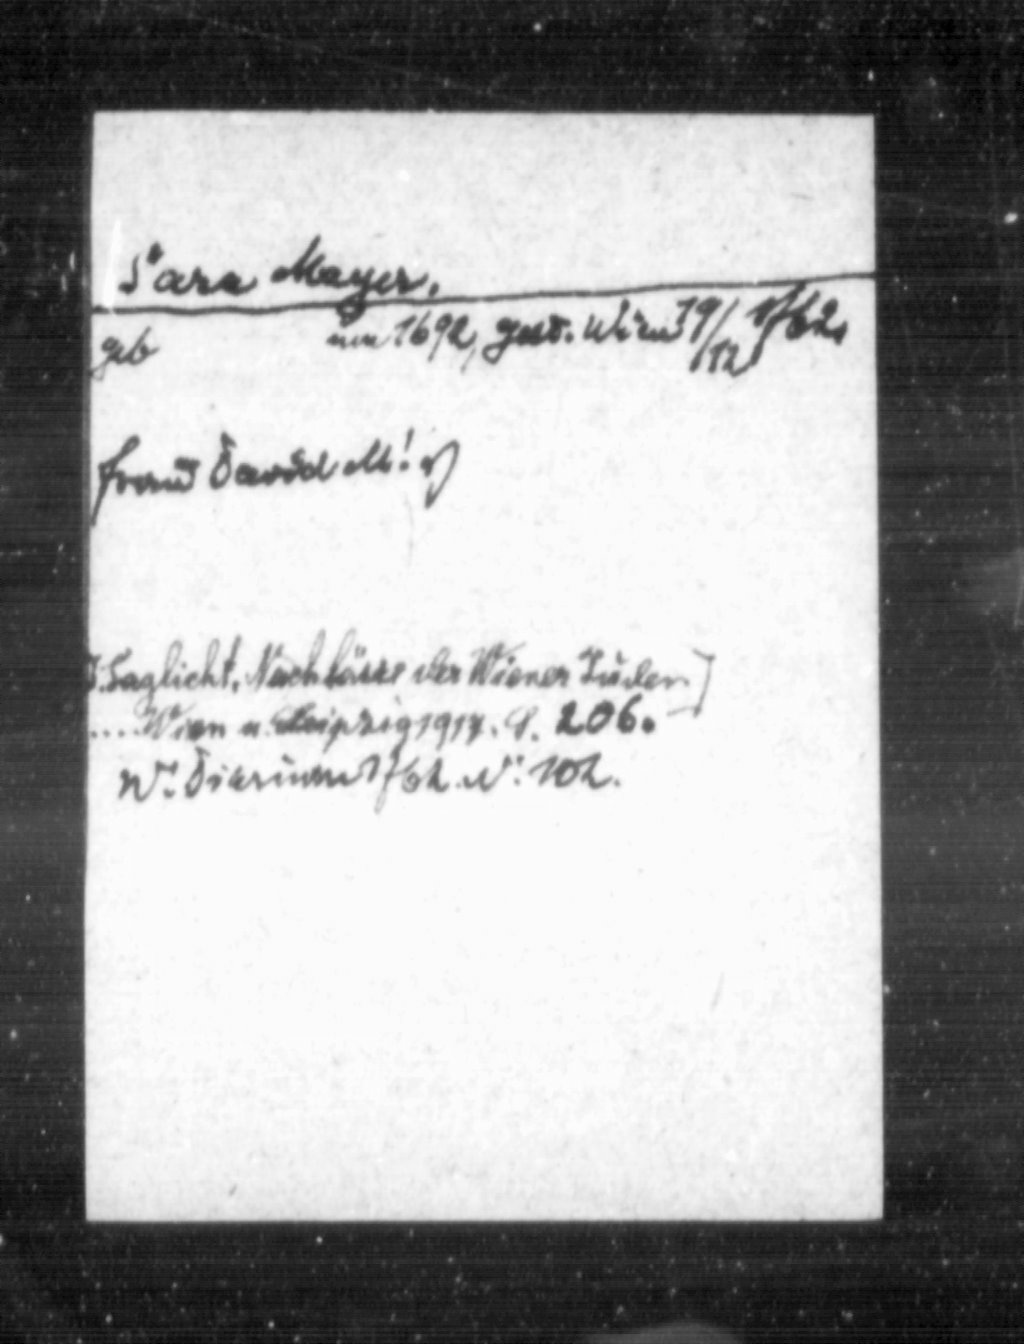 Sara Mayer.
geb um 1692, gest. Wien 19/12 1762.
frau David M's
J. Taglicht, Nachlässe der Wiener Juden
.... Wien u. Leipzig 1917. S. 206.
W. Diarium 1762 N: 102.